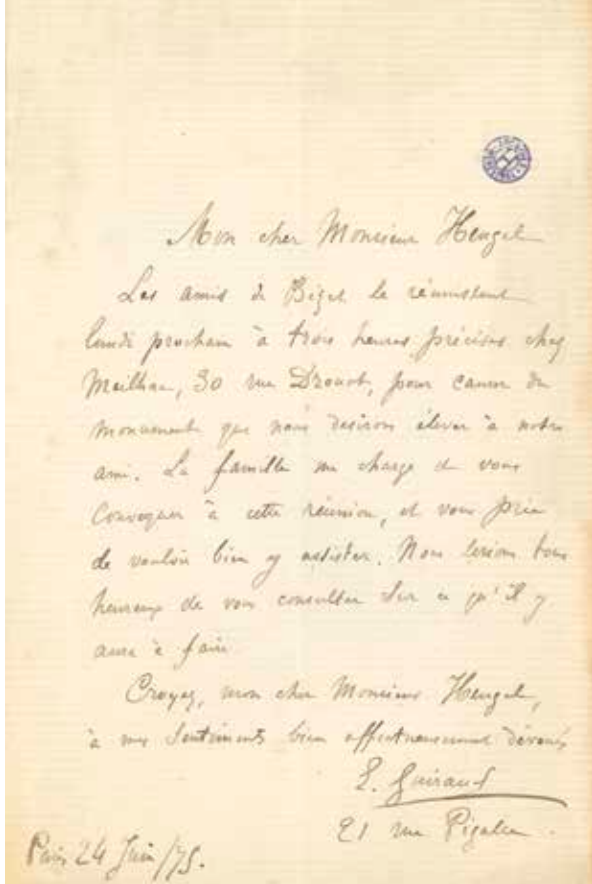 Mon cher Monsieur Heugel
Les amis de Bizet se réunissent
lundi prochain à trois heures précises chez
Meilhac, 30 rue Drouot, pour causer du
monument que nous désirons élever à notre
ami. La famille me charge de vous
convoquer à cette réunion, et vous prie
de vouloir bien y assister. Nous serions tous
heureux de vous consulter sur ce qu'il y
aura à faire.
Croyez, mon cher Monsieur Heugel,
à mes sentiments bien affectueusement dévoués
E. Guiraud
21 rue Pigalle.
Paris 24 Juin/75.